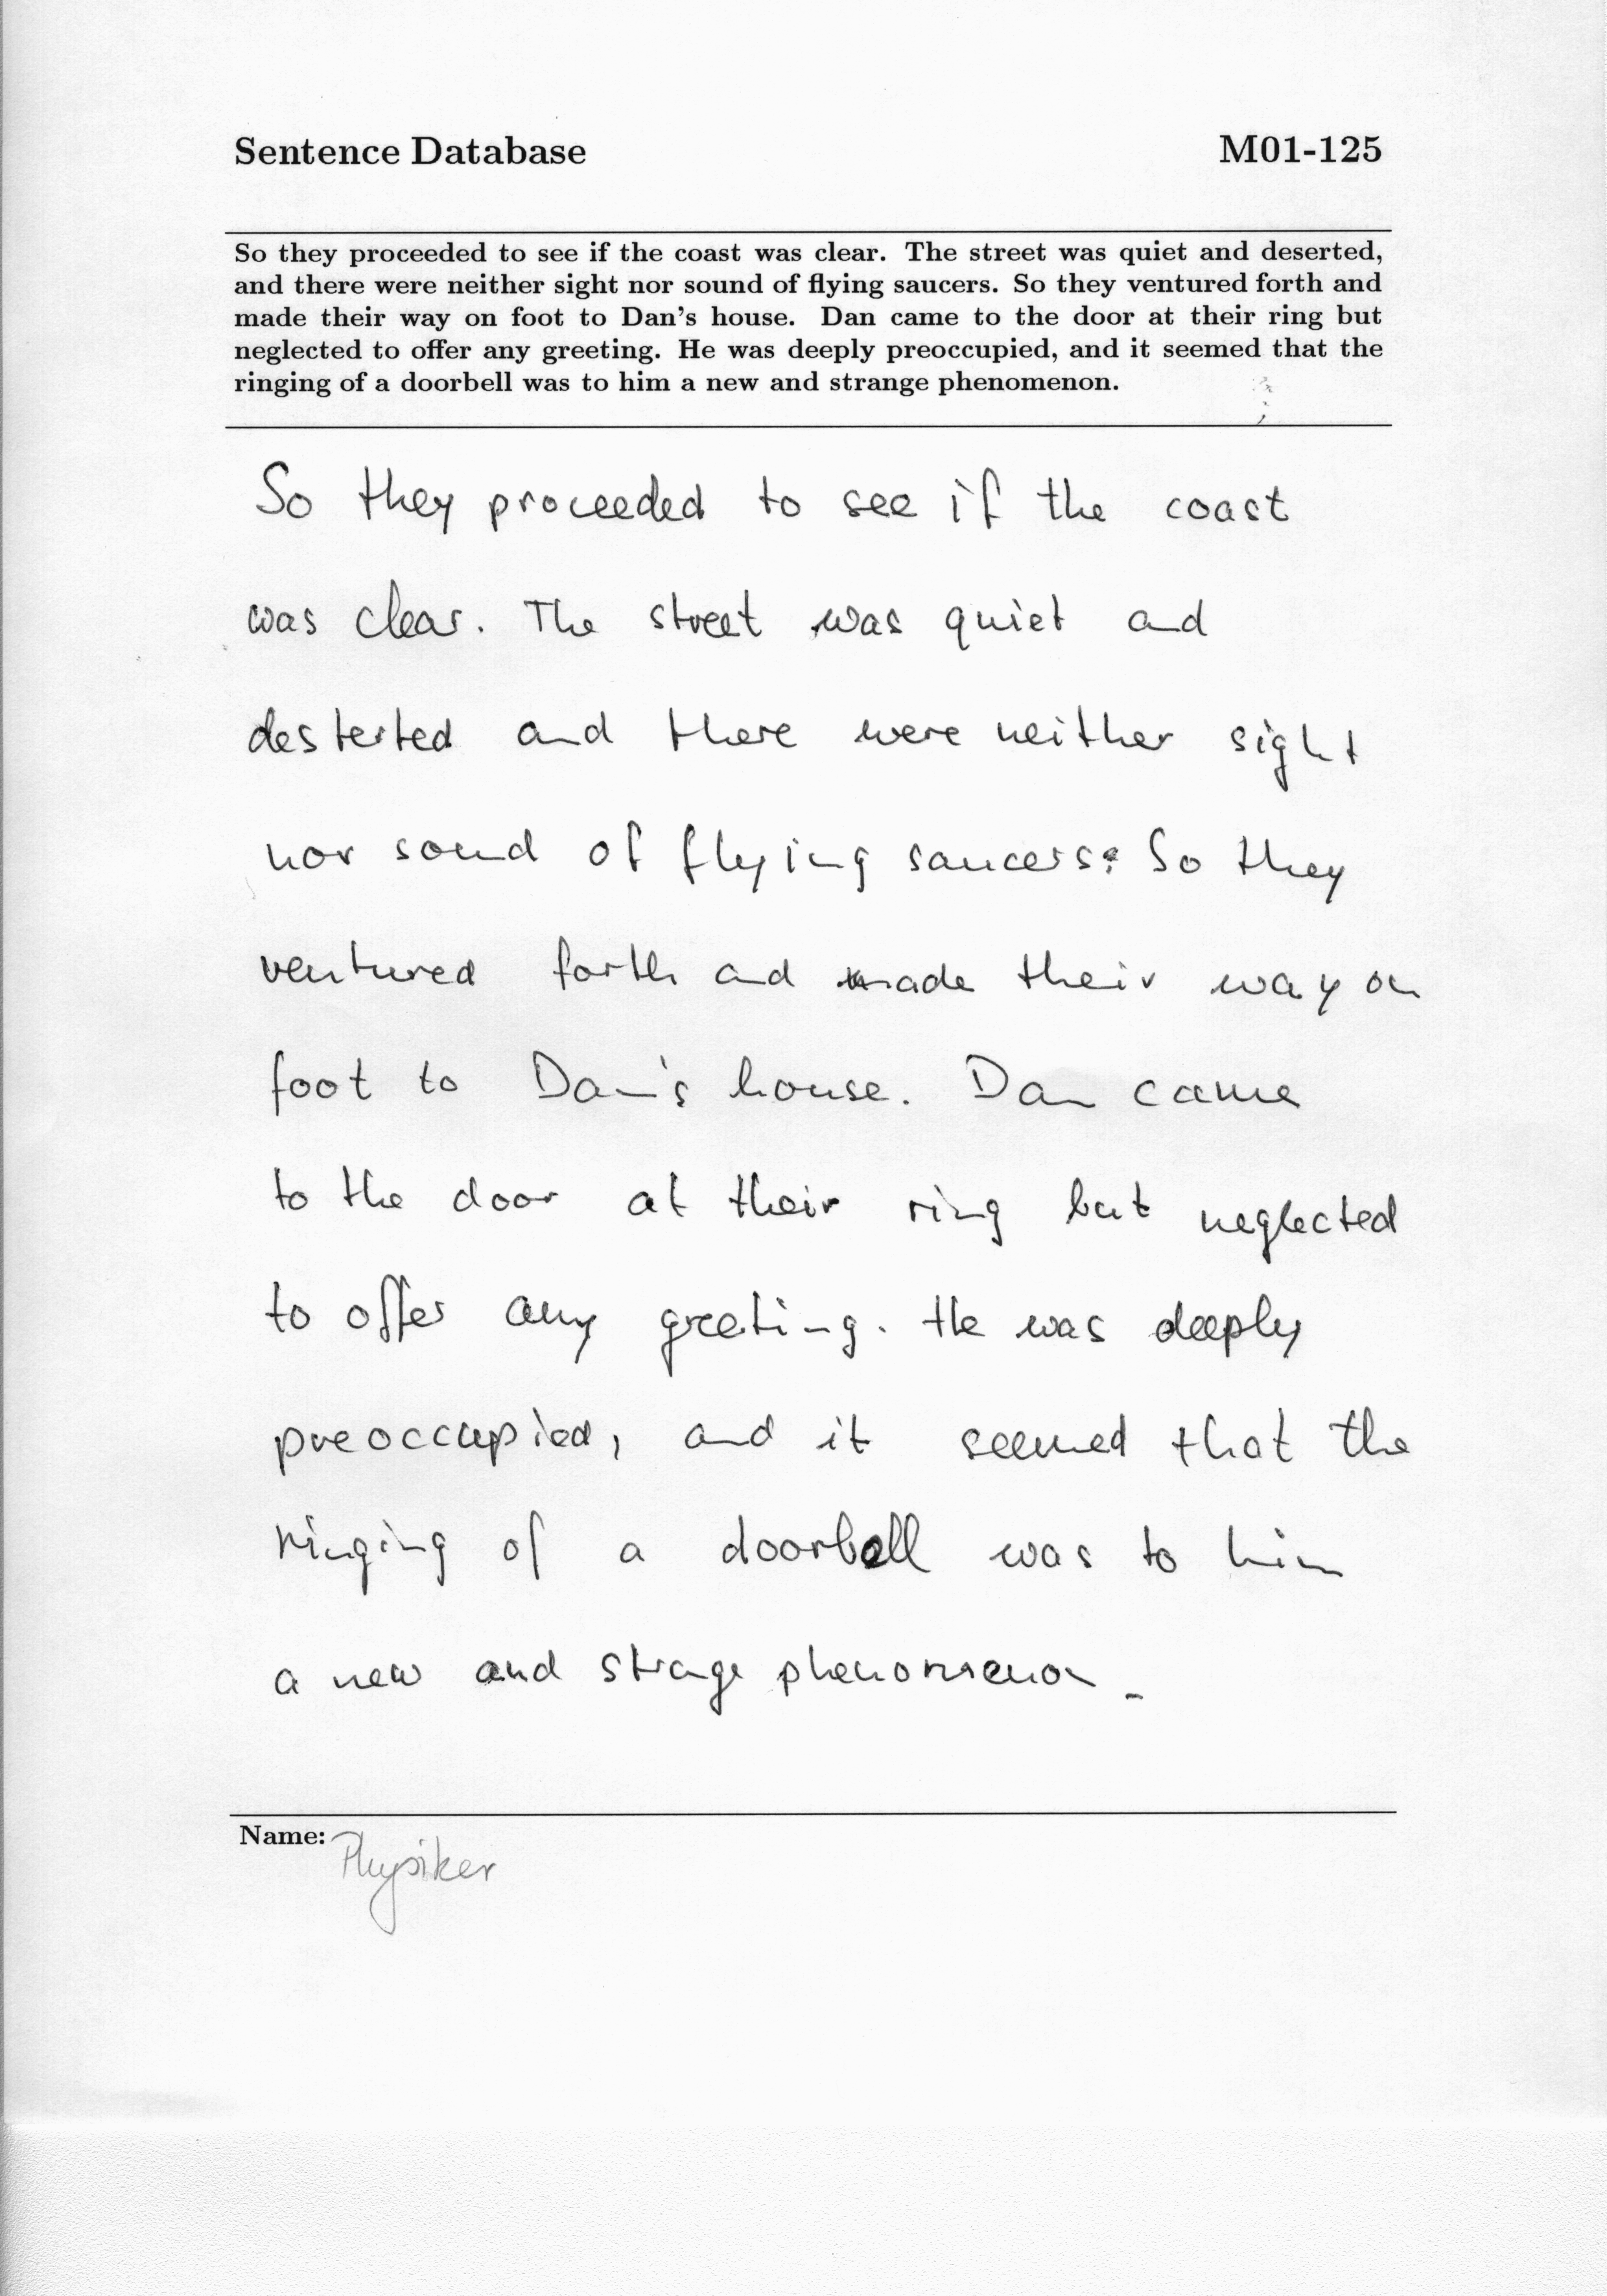 Sentence Database M01-125
So they proceeded to see if the coast was clear. The street was quiet and deserted,
and there were neither sight nor sound of flying saucers. So they ventured forth and
made their way on foot to Dan's house. Dan came to the door at their ring but
neglected to offer any greeting. He was deeply preoccupied, and it seemed that the
ringing of a doorbell was to him a new and strange phenomenon.
So they proceeded to see if the coast
was clear. The street was quiet and
desterted and there were neither sight
nor sound of flying saucers. So they
ventured forth and made their way on
foot to Dan's house. Dan came
to the door at their ring but neglected
to offer any greeting. He was deeply
preoccupied, and it seemed that the
ringing of a doorbell was to him
a new and strange phenomenon.
Name: Physiker